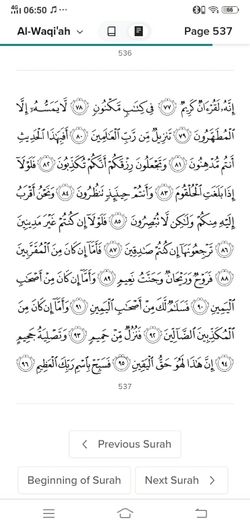 06:50
66
Al-Waqi'ah
Page 537
536
إِنَّهُۥ لَقُرْءَانٌ كَرِيمٌ ٧٧ فِى كِتَٰبٍ مَّكْنُونٍ ٧٨ لَّا يَمَسُّهُۥٓ إِلَّا
ٱلْمُطَهَّرُونَ ٧٩ تَنزِيلٌ مِّن رَّبِّ ٱلْعَٰلَمِينَ ٨٠ أَفَبِهَٰذَا ٱلْحَدِيثِ
أَنتُم مُّدْهِنُونَ ٨١ وَتَجْعَلُونَ رِزْقَكُمْ أَنَّكُمْ تُكَذِّبُونَ ٨٢ فَلَوْلَآ
إِذَا بَلَغَتِ ٱلْحُلْقُومَ ٨٣ وَأَنتُمْ حِينَئِذٍ تَنظُرُونَ ٨٤ وَنَحْنُ أَقْرَبُ
إِلَيْهِ مِنكُمْ وَلَٰكِن لَّا تُبْصِرُونَ ٨٥ فَلَوْلَآ إِن كُنتُمْ غَيْرَ مَدِينِينَ
٨٦ تَرْجِعُونَهَآ إِن كُنتُمْ صَٰدِقِينَ ٨٧ فَأَمَّآ إِن كَانَ مِنَ ٱلْمُقَرَّبِينَ
٨٨ فَرَوْحٌ وَرَيْحَانٌ وَجَنَّتُ نَعِيمٍ ٨٩ وَأَمَّآ إِن كَانَ مِنْ أَصْحَٰبِ
ٱلْيَمِينِ ٩٠ فَسَلَٰمٌ لَّكَ مِنْ أَصْحَٰبِ ٱلْيَمِينِ ٩١ وَأَمَّآ إِن كَانَ مِنَ
ٱلْمُكَذِّبِينَ ٱلضَّآلِّينَ ٩٢ فَنُزُلٌ مِّنْ حَمِيمٍ ٩٣ وَتَصْلِيَةُ جَحِيمٍ
٩٤ إِنَّ هَٰذَا لَهُوَ حَقُّ ٱلْيَقِينِ ٩٥ فَسَبِّحْ بِٱسْمِ رَبِّكَ ٱلْعَظِيمِ ٩٦
537
Previous Surah
Beginning of Surah
Next Surah